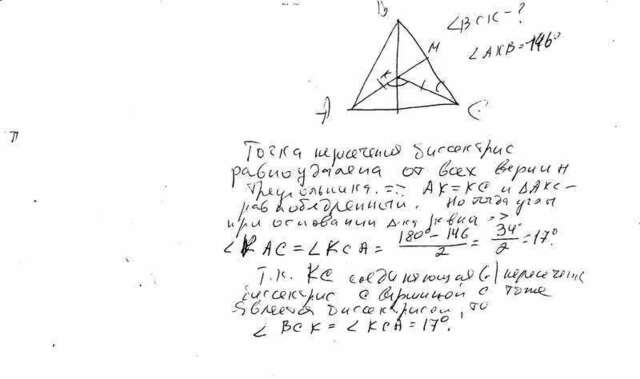 B
∠BCK - ?
∠AKB = 146°
M
K
A
C
Точка пересечения биссектрис
равноудалена от всех вершин
треугольника. => AK = KC и ΔAKC -
равнобедренный. Но тогда углы
при основании равны =>
∠KAC = ∠KCA = (180° - 146)/2 = 34°/2 = 17°.
Т.к. KC соединяющая пересечение
биссектрис с вершиной C тоже
является биссектрисой, то
∠BCK = ∠KCA = 17°.